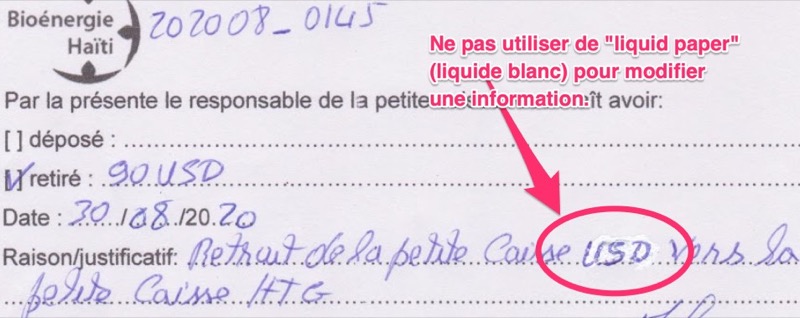 Bioénergie
Haïti
202008_0145
Ne pas utiliser de "liquid paper"
(liquide blanc) pour modifier
une information.
Par la présente le responsable de la petite avoir:
[ ] déposé :
[ ] retiré : 90 USD
Date : 30/08/2020
Raison/justificatif: Retrait de la petite Caisse USD vers la
petite Caisse HTG